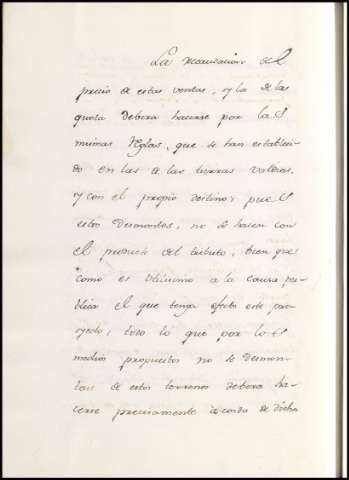 La recaudacion del
precio de estas ventas, y la de las
quotas debera hacerse por las
mismas Reglas, que se han estableci-
do en las de las tierras valdias,
y con el propio destino; pues
estos desmontes, no se hacen con
el producto del tributo, bien que
como es utilisimo a la causa pu-
blica el que tenga efecto este pro-
yecto; todo lo que por los
medios propuestos no se desmon-
tare de estos terrenos debera ha-
cerse precisamente à costa de dicho